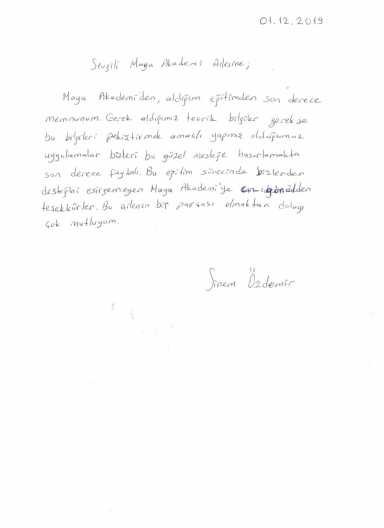 01.12.2019
Sevgili Maya Akademi Ailesine,
Maya Akademi'den, aldığım eğitimden son derece
memnunum. Gerek aldığımız teorik bilgiler gerekse
bu bilgileri pekiştirmek amaçlı yapmış olduğumuz
uygulamalar bizleri bu güzel mesleğe hazırlamakta
son derece faydalı. Bu eğitim sürecinde bizlerden
desteğini esirgemeyen Maya Akademi'ye en içgönülden
teşekkürler. Bu ailenin bir parçası olmaktan dolayı
çok mutluyum.
Sinem Özdemir